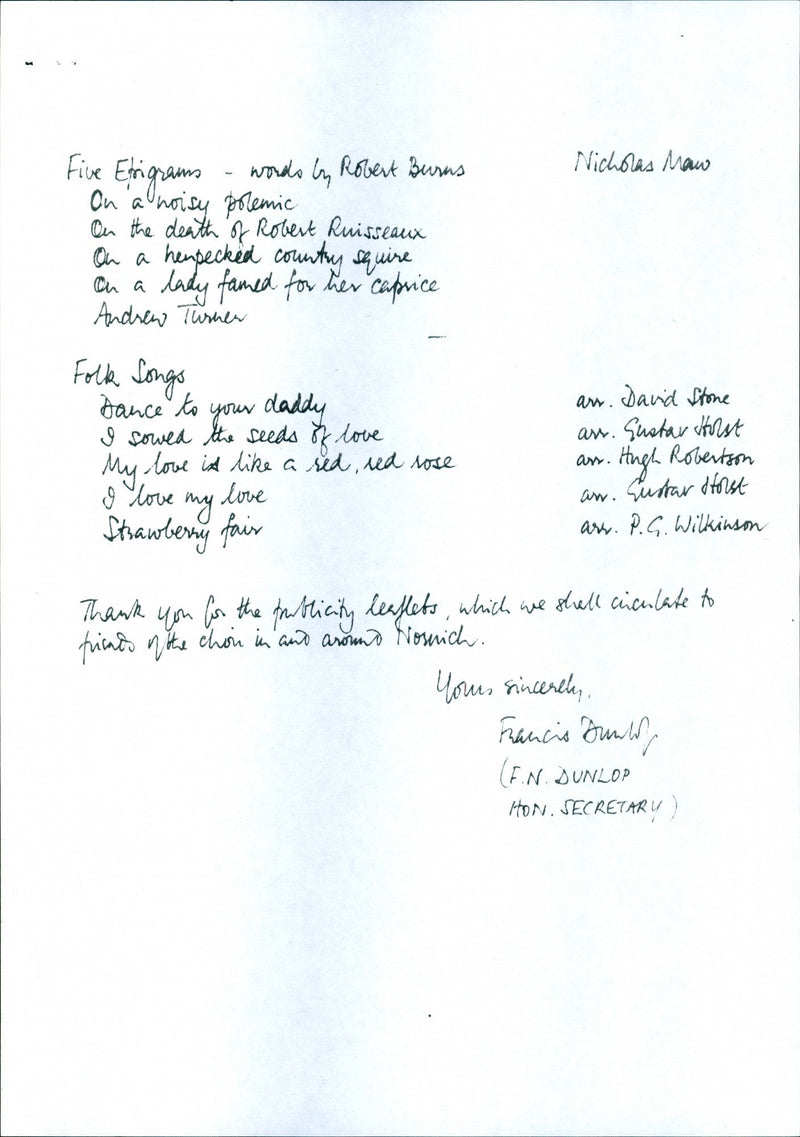 Five Epigrams - words by Robert Burns Nicholas Maw
On a noisy polemic
On the death of Robert Ruisseaux
On a henpecked country squire
On a lady famed for her caprice
Andrew Turner
Folk Songs
Dance to your daddy arr. David Stone
I sowed the seeds of love arr. Gustav Holst
My love is like a red, red rose arr. Hugh Robertson
I love my love arr. Gustav Holst
Strawberry fair arr. P.G. Wilkinson
Thank you for the publicity leaflets, which we shall circulate to
friends of the choir in and around Norwich.
Yours sincerely,
Francis Dunlop
(F.N. DUNLOP
HON. SECRETARY)